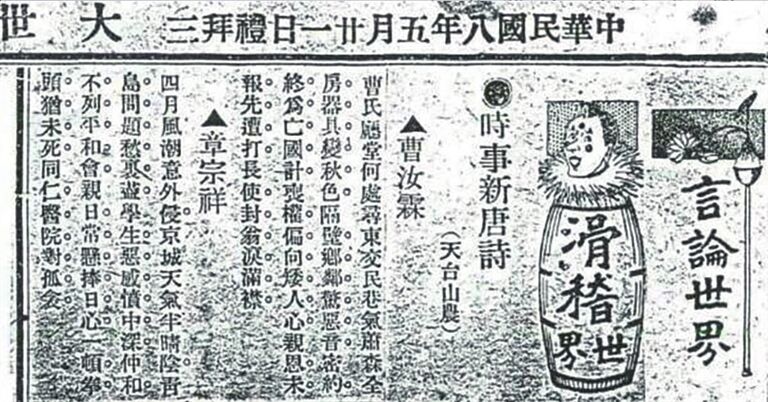 中華民國八年五月廿一日禮拜三
大世
言論世界
滑稽世界
時事新唐詩
(天台山農)
▲曹汝霖
曹氏廳堂何處尋東交民巷氣蕭森全
房器具變秋色隔壁鄉鄰驚惡音密約
終爲亡國計喪權偏向矮人心親恩未
報先遭打長使封翁淚滿襟
▲章宗祥
四月風潮意外侵京城天氣半晴陰青
島問題愁裏學生惡感憤中深仲和
不列平和會親日常懸捧日心一頓拳
頭猶未死同仁醫院對孤衾